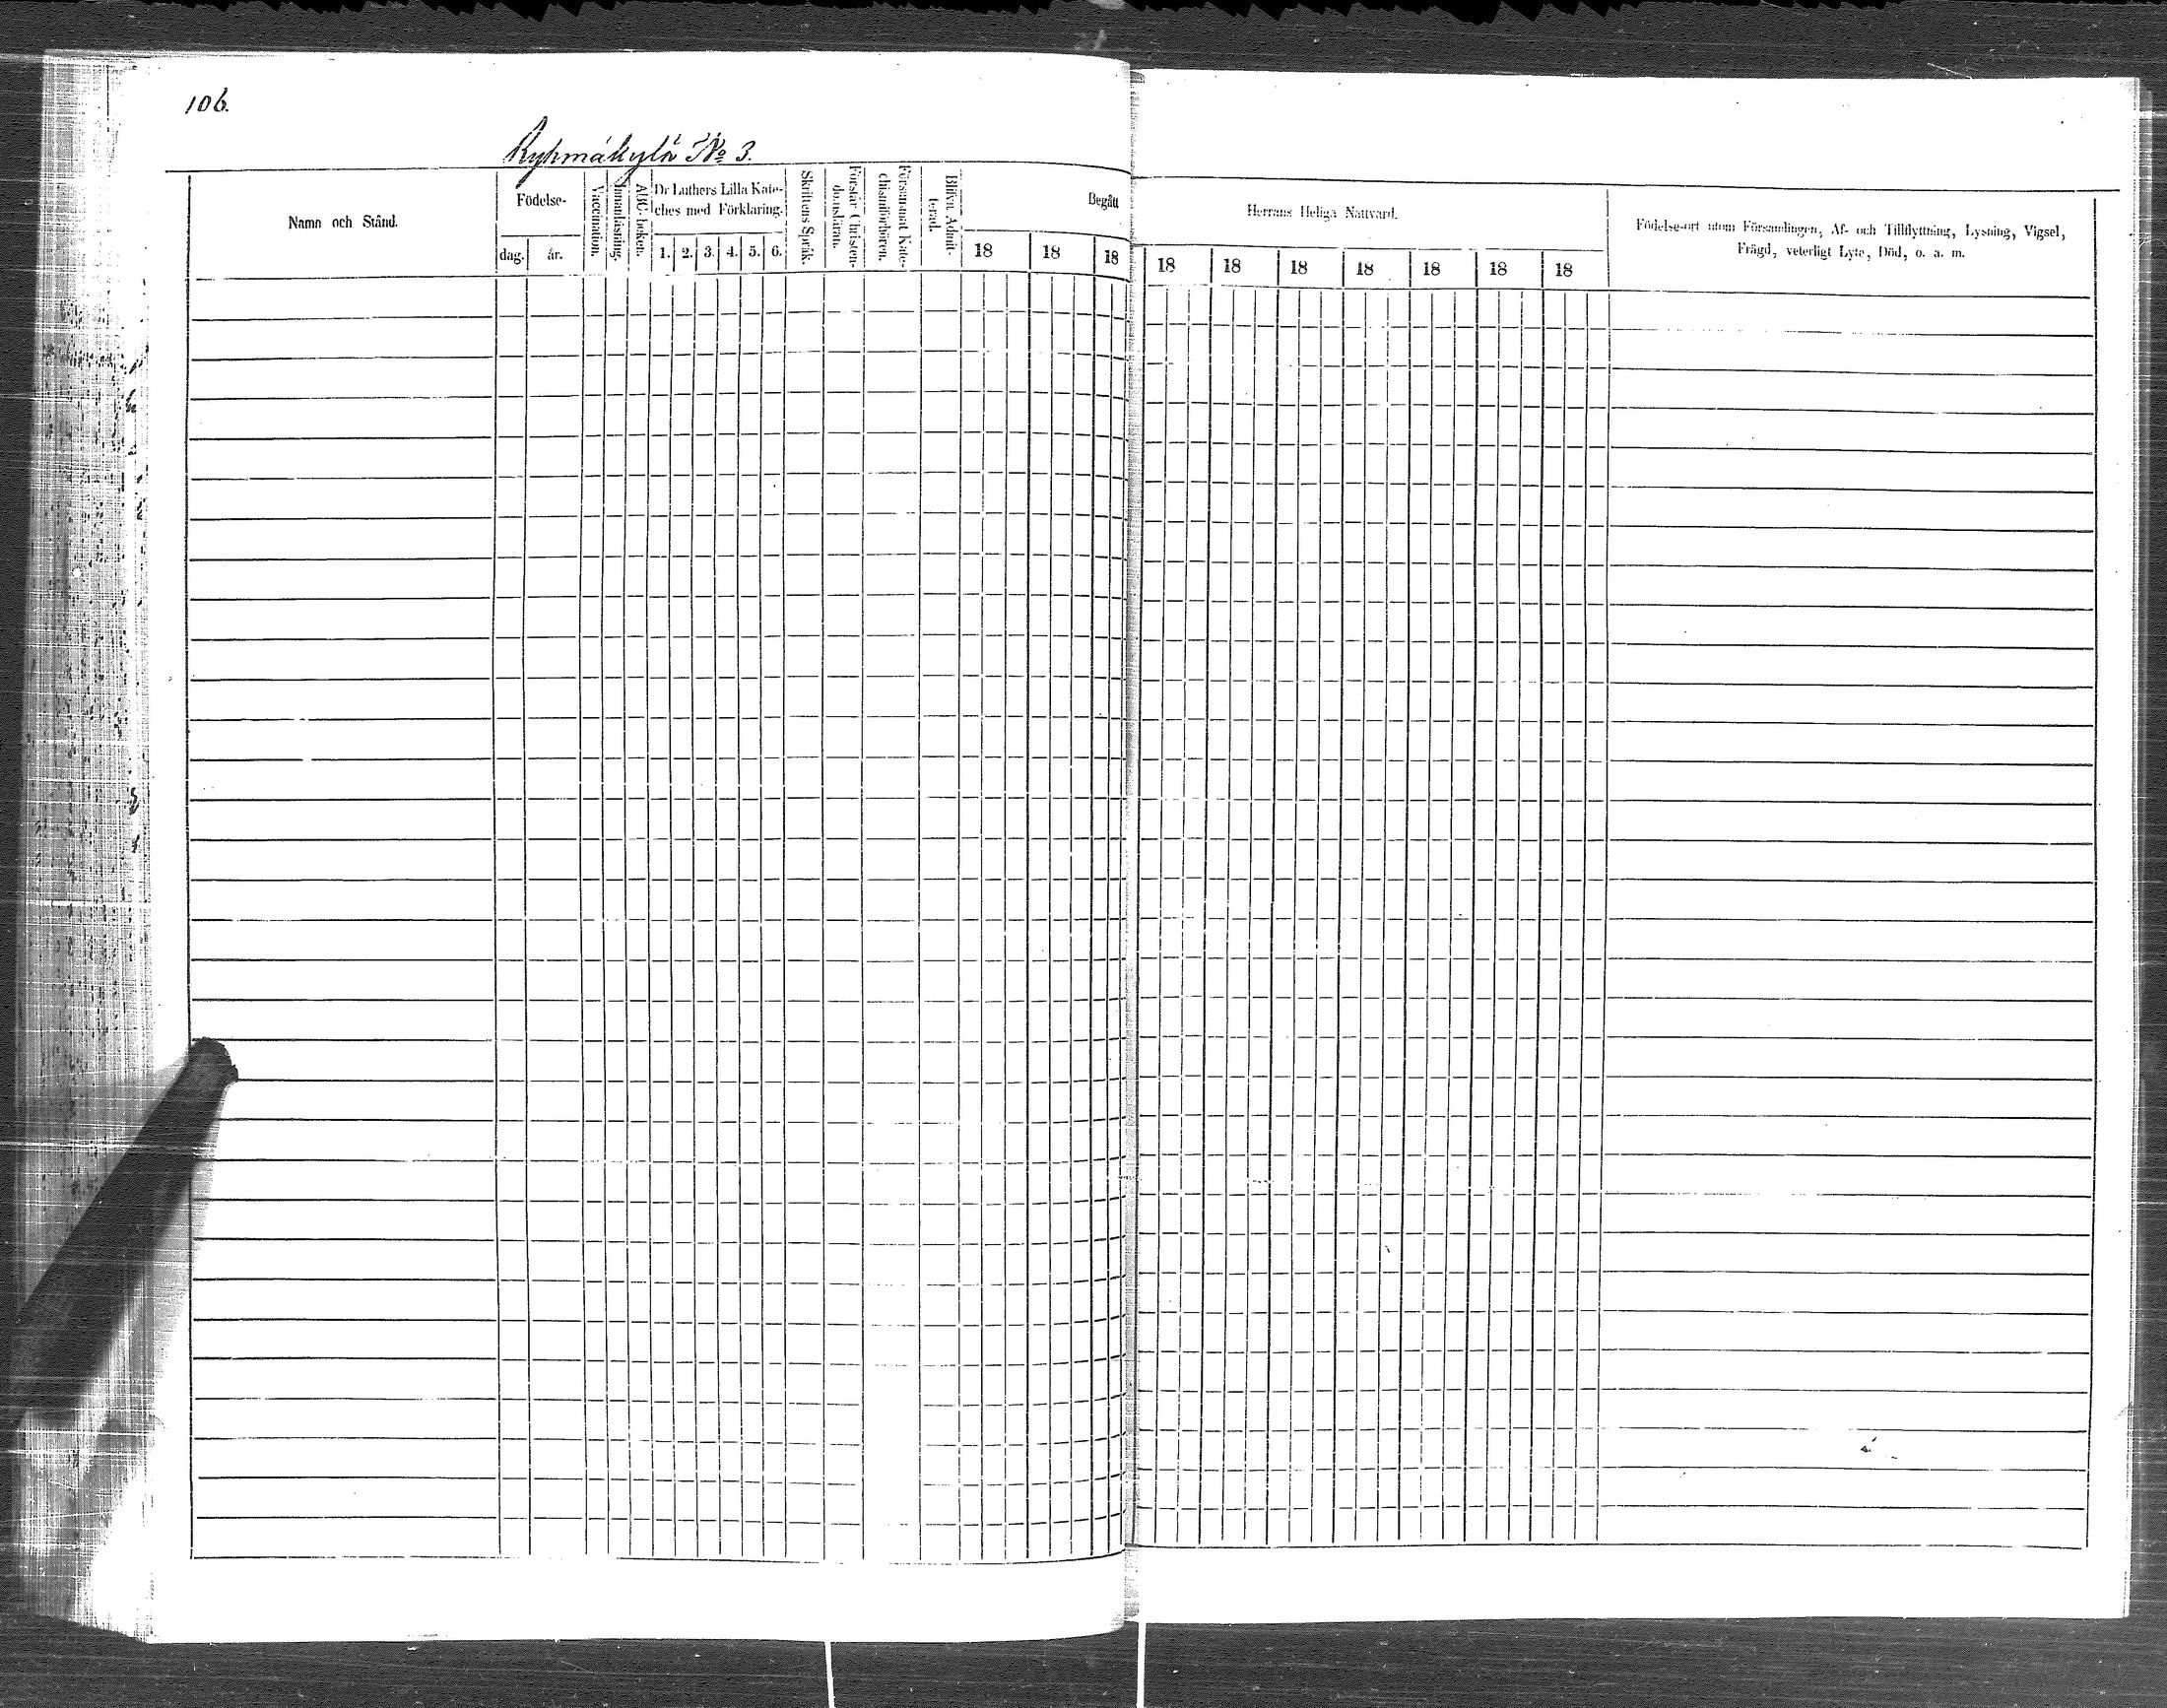 106.
Ryhmäkylä No 3.
Namn och Stånd.
Födelse-
dag.
år.
Vaccination.
Innanläsning.
ABC-boken.
Dr Luthers Lilla Kate-
ches med Förklaring.
1. 2. 3. 4. 5. 6.
Skriftens Språk.
Förstår Christen-
domsläran.
Försummat Kate-
chismiförhören.
Blifvit Admit-
terad.
Begått
18 18 18
Herrans Heliga Nattvard.
18 18 18 18 18 18 18
Födelse-ort utom Församlingen, Af- och Tillflyttning, Lysning, Vigsel,
Frägd, veterligt Lyte, Död, o. a. m.